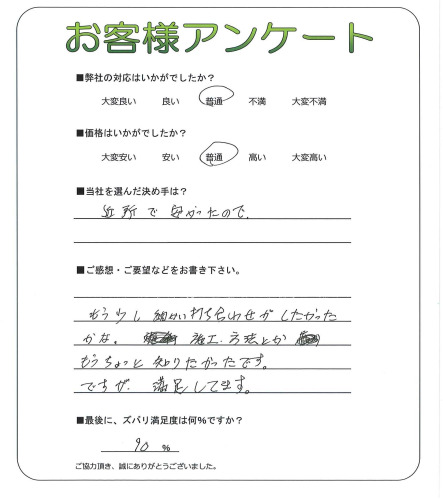 お客様アンケート
■弊社の対応はいかがでしたか？
大変良い 良い 普通 不満 大変不満
■価格はいかがでしたか？
大変安い 安い 普通 高い 大変高い
■当社を選んだ決め手は？
近所で安かったので.
■ご感想・ご要望などをお書き下さい。
もう少し細かい打ち合わせがしたかった
かな。 施工.方法とか
もうちょっと知りたかったです。
ですが、満足してます。
■最後に、ズバリ満足度は何%ですか？
90 %
ご協力頂き、誠にありがとうございました。